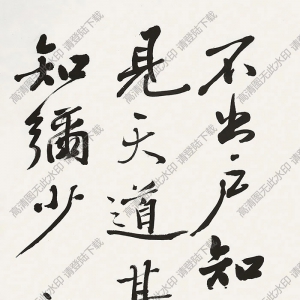 不出户知
見天道其
知彌少
高清图无此水印 请登陆下载
高清图无此水印 请登陆下载
高清图无此水印 请登陆下载
高清图无此水印 请登陆下载
高清图无此水印 请登陆下载
高清图无此水印 请登陆下载